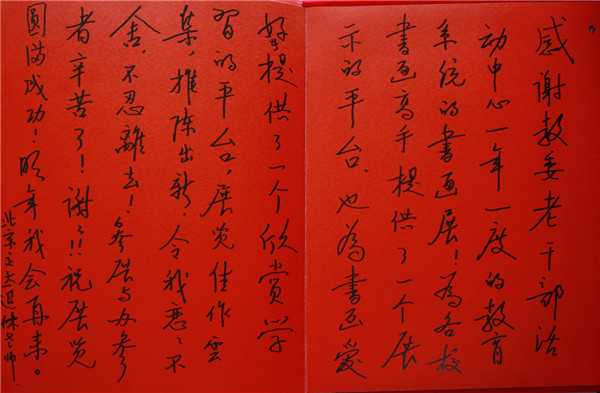 感谢教委老干部活
动中心一年一度的教育
系统的書画展！為各校
書画高手提供了一个展
示的平台、也為書画爱
好者提供了一个欣赏学
習的平台。展览佳作雲
集，推陈出新，令我恋々不
舍，不忍離去！参展与办参
者辛苦了！谢々!!祝展览
圆满成功！明年我会再来。
北京交大退休老师